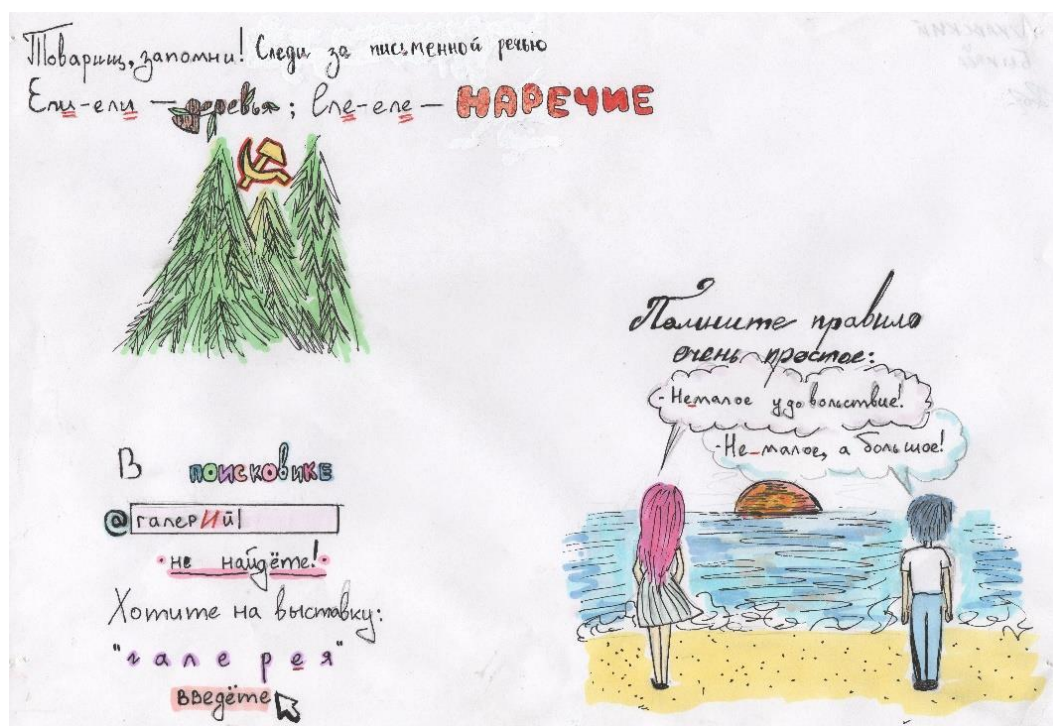 Товарищ, запомни! Следи за письменной речью
Ели-ели — деревья; Еле-еле — НАРЕЧИЕ
Помните правило
очень простое:
- Немалое удовольствие!
- Не малое, а большое!
В поисковике
@ галерИй
не найдёте!
Хотите на выставку:
"галерея"
введёте